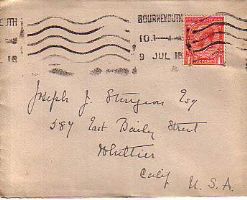 BOURNEMOUTH
9 JUL 18
Joseph J. Sturgeon Esq
587 East Baily Street
Whittier
Calif U.S.A.